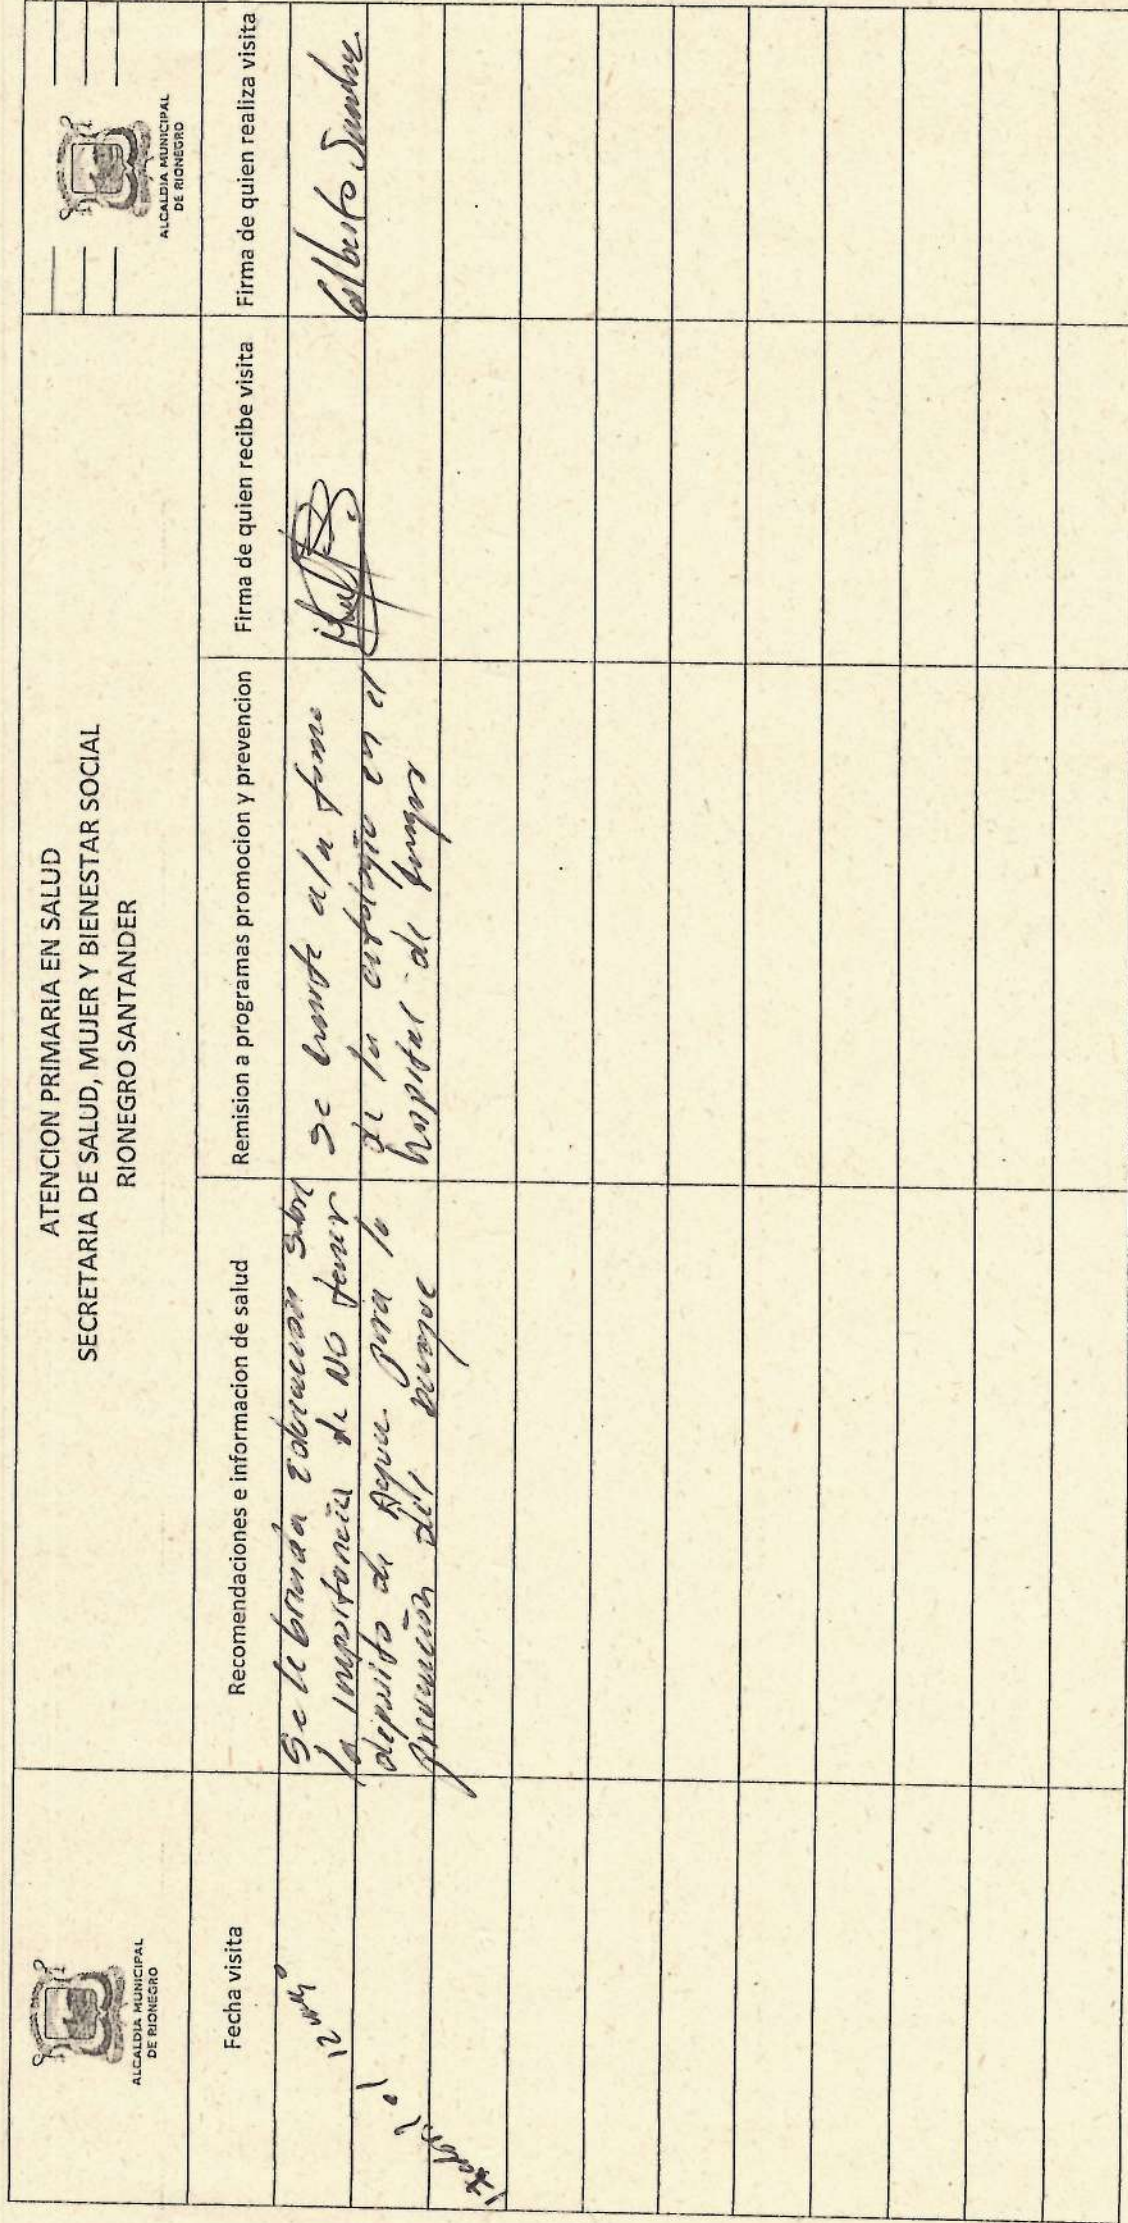 ALCALDIA MUNICIPAL
DE RIONEGRO
ATENCION PRIMARIA EN SALUD
SECRETARIA DE SALUD, MUJER Y BIENESTAR SOCIAL
RIONEGRO SANTANDER
ALCALDIA MUNICIPAL
DE RIONEGRO
Fecha visita
Recomendaciones e informacion de salud
Remision a programas promocion y prevencion
Firma de quien recibe visita
Firma de quien realiza visita
12
Se le brinda Educación Sobre
la importancia de NO tener
deposito de Agua para la
prevención del dengue
Se remite a la toma
de la citologia en el
hospital de